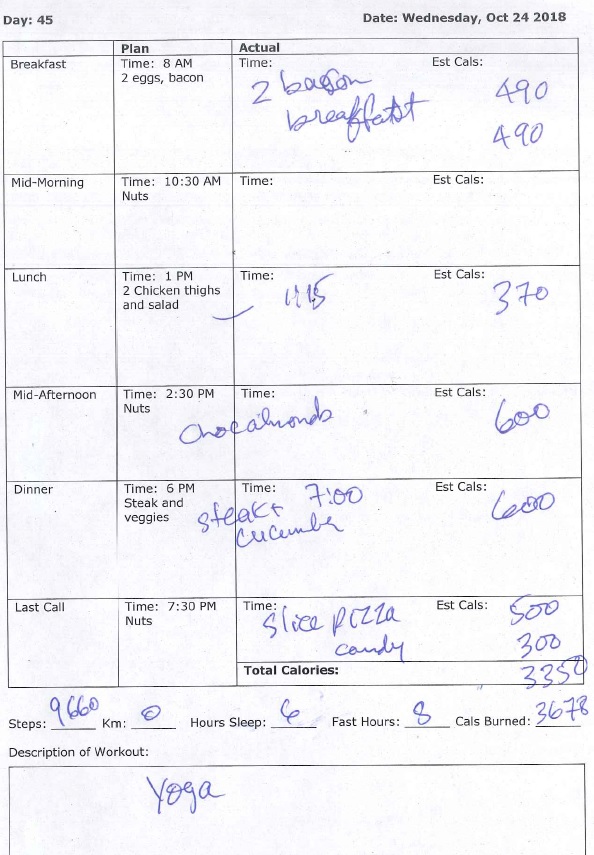 Day: 45 Date: Wednesday, Oct 24 2018
Plan Actual
Breakfast Time: 8 AM Time: Est Cals:
2 eggs, bacon 2 bagon 490
breakfatst 490
Mid-Morning Time: 10:30 AM Time: Est Cals:
Nuts
Lunch Time: 1 PM Time: Est Cals:
2 Chicken thighs 1115 370
and salad
Mid-Afternoon Time: 2:30 PM Time: Est Cals:
Nuts
Choc almonds 600
Dinner Time: 6 PM Time: 7:00 Est Cals:
Steak and steak + 600
veggies cucumber
Last Call Time: 7:30 PM Time: Est Cals: 500
Nuts slice pizza
candy 300
Total Calories: 3350
Steps: 9660 Km: 0 Hours Sleep: 6 Fast Hours: 8 Cals Burned: 3678
Description of Workout:
Yoga